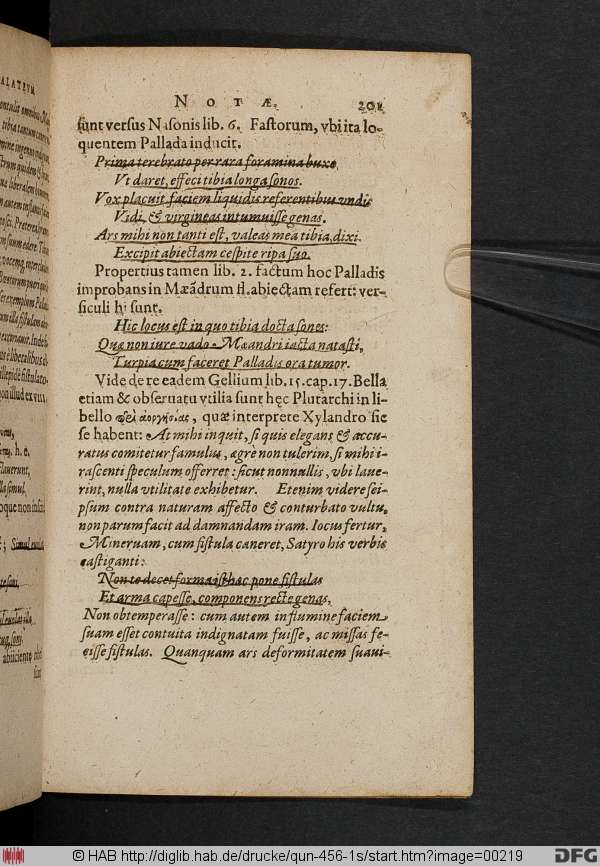 ALATEVM
NOTÆ. 201
sunt versus Nasonis lib. 6. Fastorum, vbi ita lo-
quentem Pallada inducit.
Prima terebrato per rara foramina buxo,
Vt daret, effeci tibia longa sonos.
Vox placuit, faciem liquidis referentibus vndis
Vidi, & virgineas intumuisse genas.
Ars mihi non tanti est, valeas mea tibia, dixi.
Excipit abiectam cespite ripa suo.
Propertius tamen lib. 2. factum hoc Palladis
improbans in Mæãdrum fl. abiectam refert: ver-
siculi hi sunt.
Hic locus est in quo tibia docta sones:
Quæ non iure vado Mæandri iacta natasti,
Turpia cum faceret Palladis ora tumor.
Vide de re eadem Gellium lib. 15. cap. 17. Bella
etiam & obseruatu vtilia sunt hęc Plutarchi in li-
bello περὶ ἀοργησίας, quæ interprete Xylandro sic
se habent: At mihi inquit, si quis elegans & accu-
ratus comitetur famulus, ægre non tulerim, si mihi i-
rascenti speculum offerret: sicut nonnullis, vbi laue-
rint, nulla vtilitate exhibetur. Etenim videre sei-
psum contra naturam affecto & conturbato vultu,
non parum facit ad damnandam iram. Iocus fertur,
Mineruam, cum fistula caneret, Satyro his verbis
castiganti:
Non te decet forma isthæc pone fistulas
Et arma capesse, componens recte genas,
Non obtemperasse: cum autem in flumine faciem
suam esset contuita indignatam fuisse, ac missas fe-
cisse fistulas. Quanquam ars deformitatem suaui-
© HAB http://diglib.hab.de/drucke/qun-456-1s/start.htm?image=00219
DFG